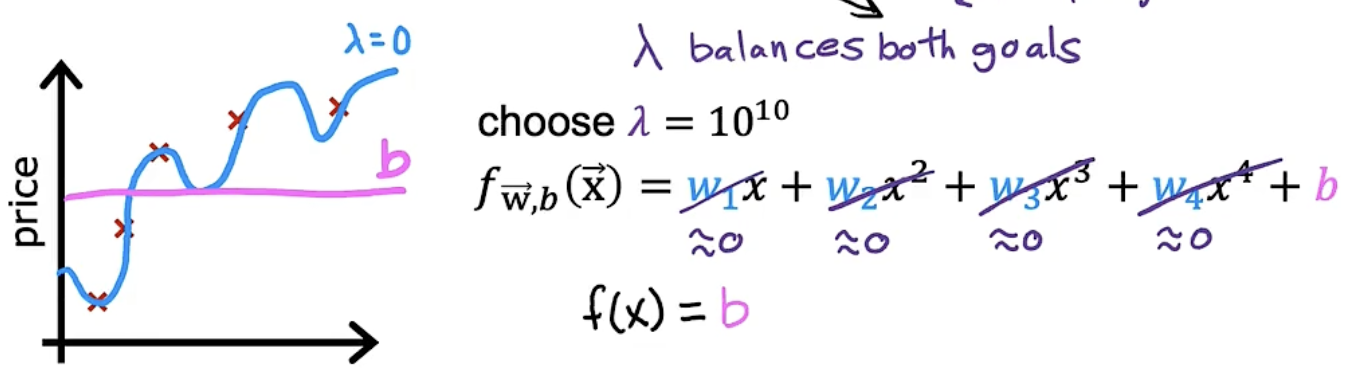 λ = 0
λ balances both goals
choose λ = 10¹⁰
b
price
f_{w⃗,b}(x⃗) = w₁x + w₂x² + w₃x³ + w₄x⁴ + b
≈0 ≈0 ≈0 ≈0
f(x) = b